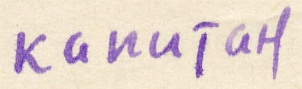 капитан